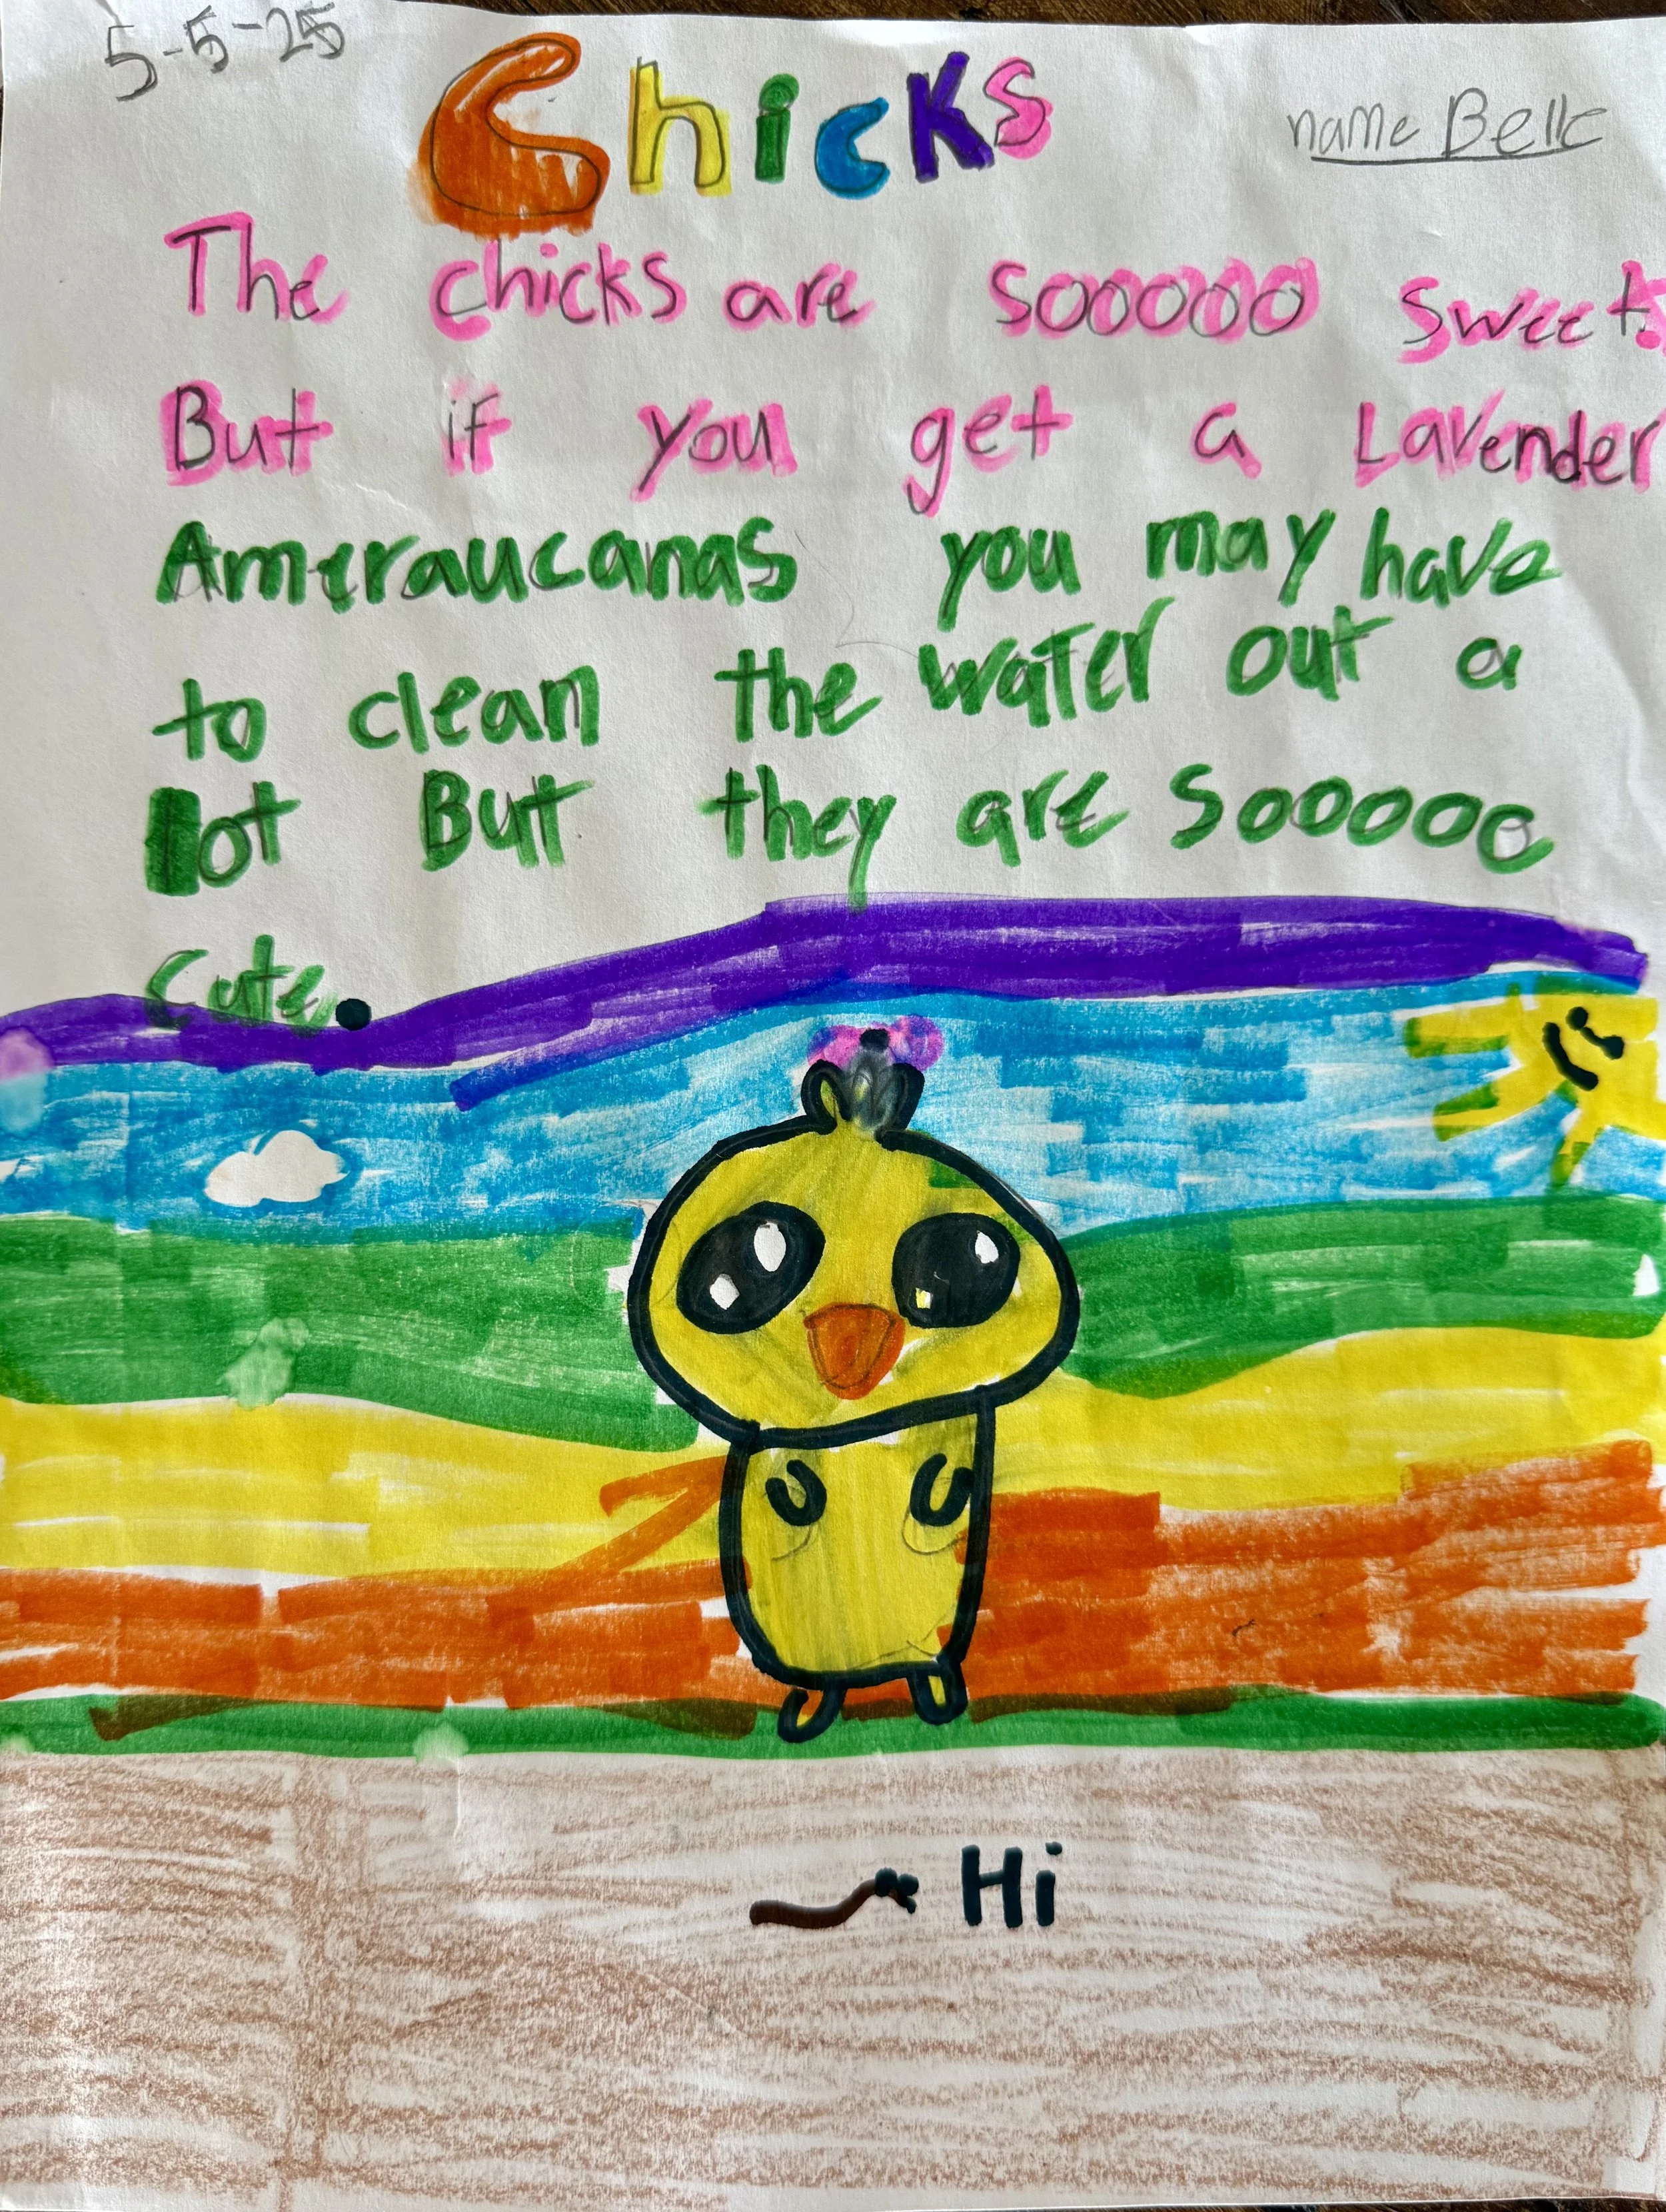 5-5-25
Chicks
name Belle
The chicks are sooooo sweet.
But if you get a Lavender
Ameraucanas you may have
to clean the water out a
lot But they are Sooooo
Cute.
Hi